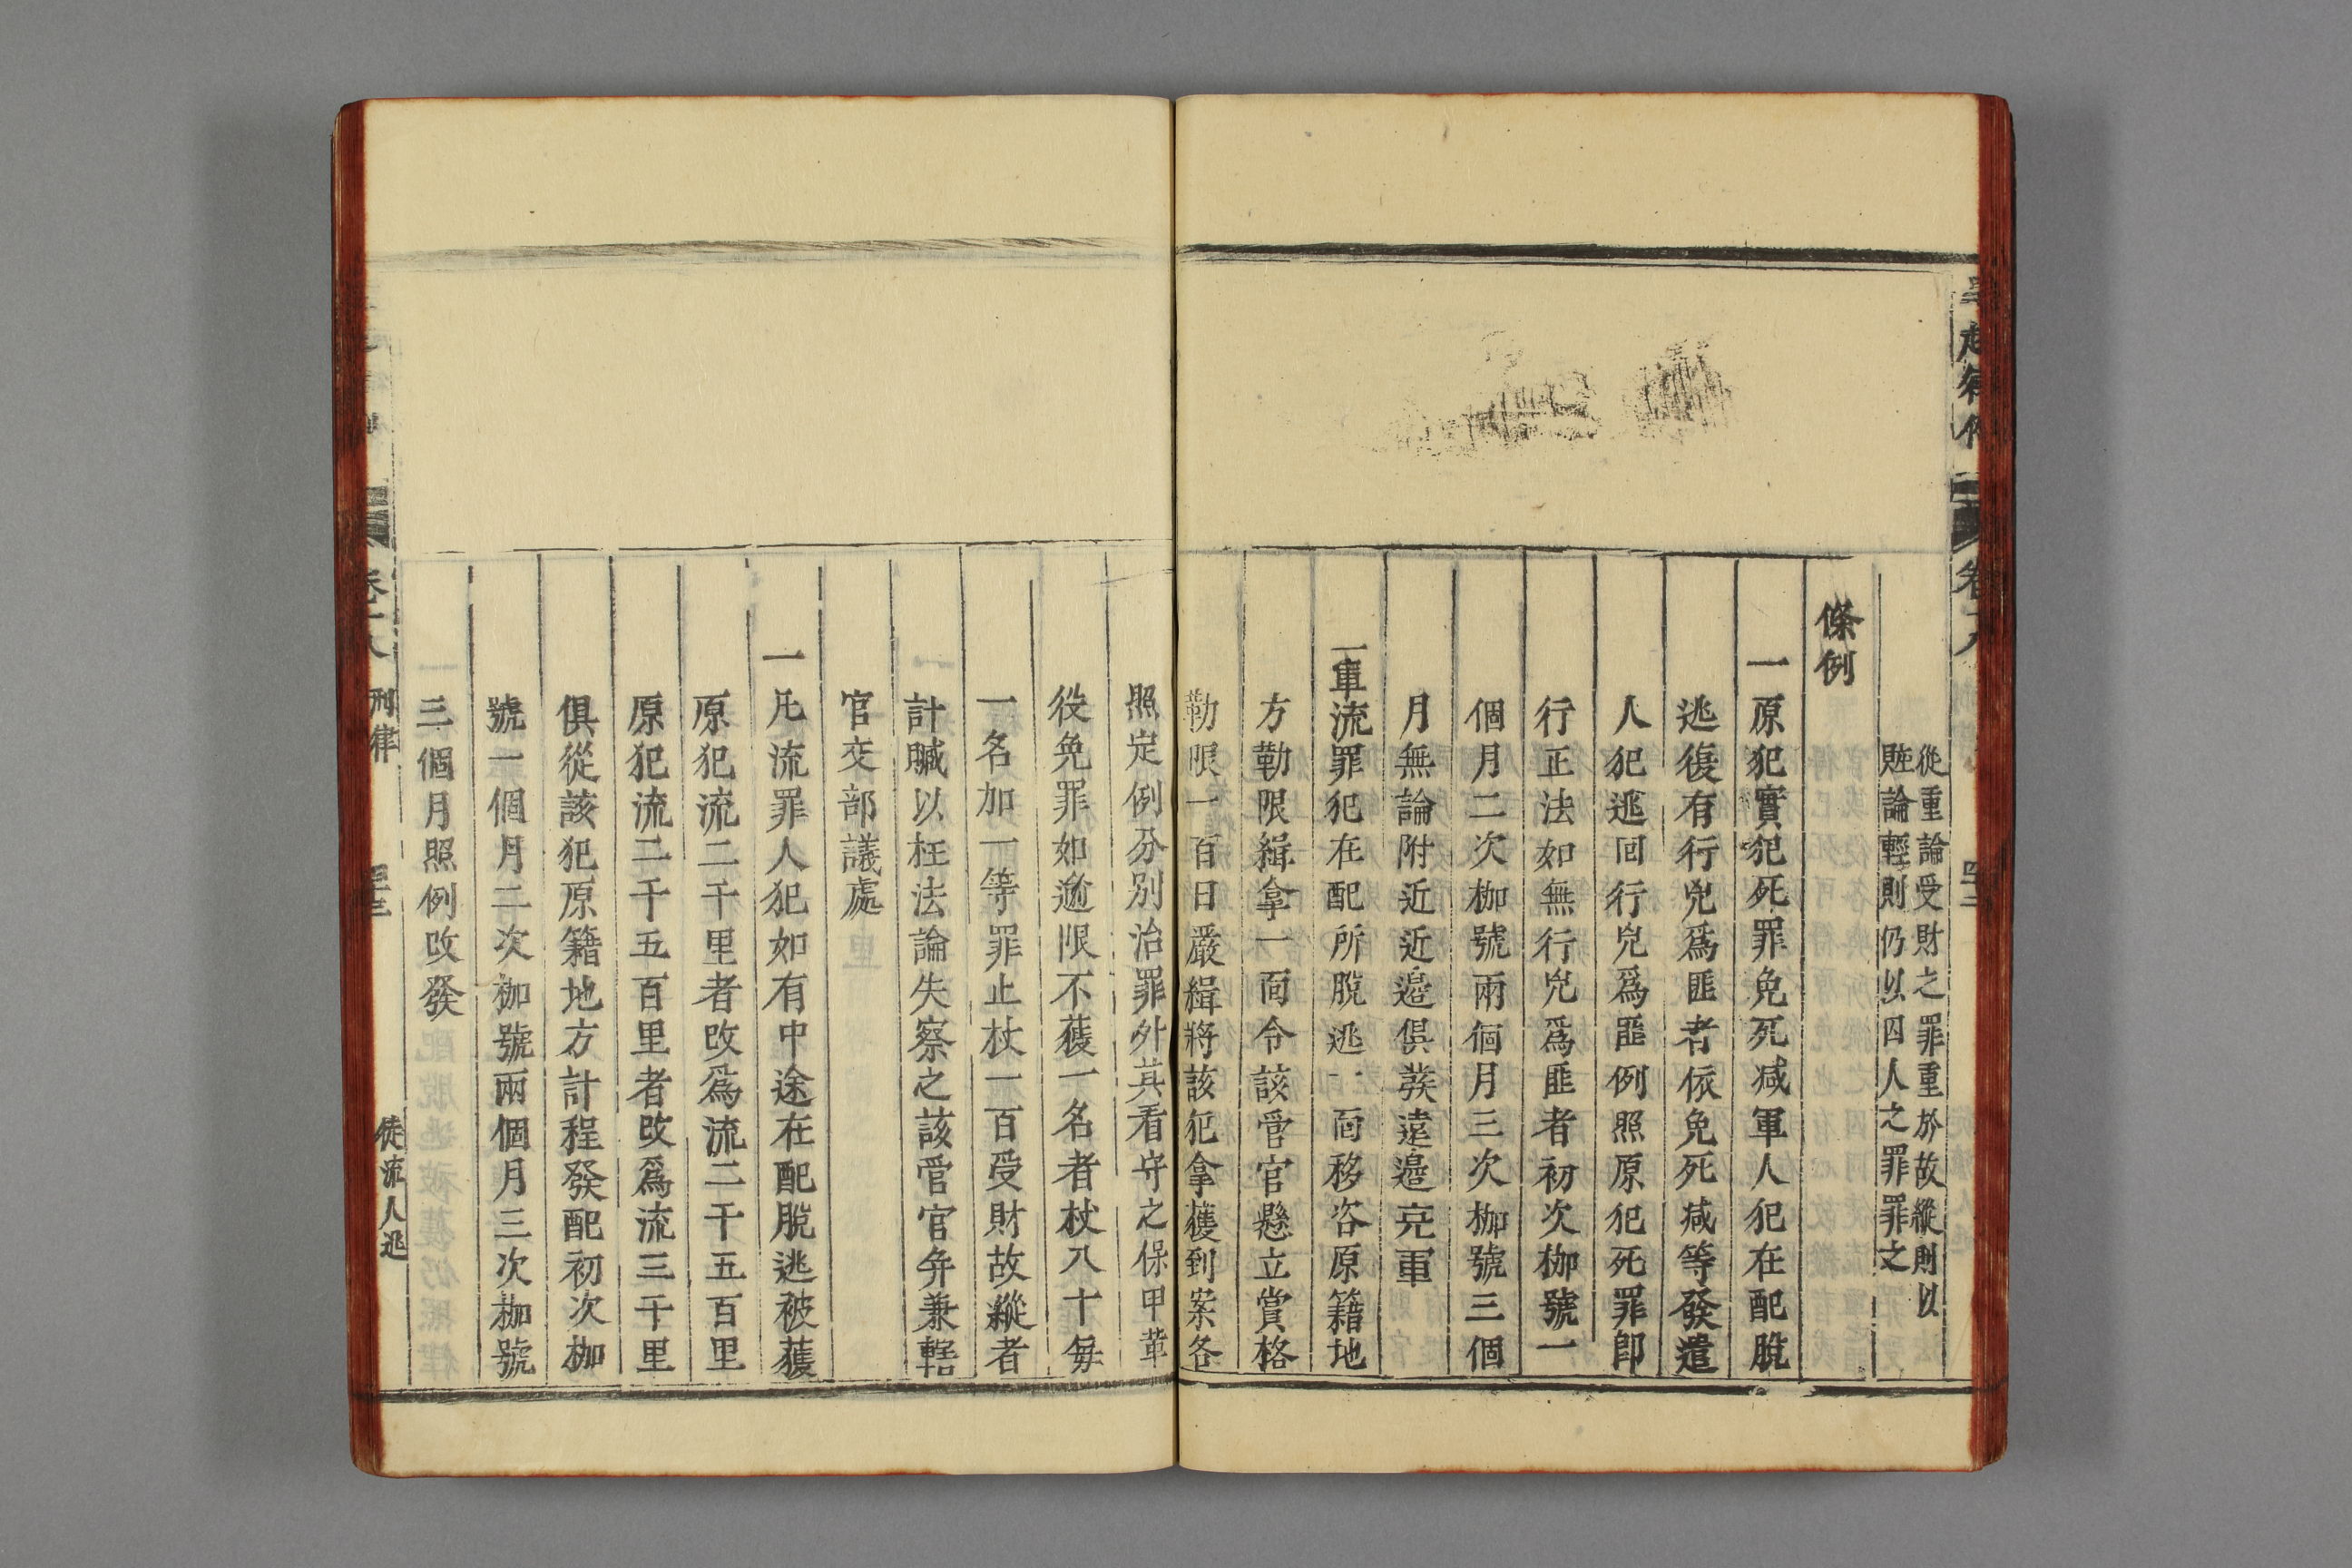 從重論受財之罪重於故縱則以
賍論輕則仍以囚人之罪罪之
條例
一原犯實犯死罪免死减軍人犯在配脫
逃復有行兇爲匪者依免死减等發遣
人犯逃回行兇爲匪例照原犯死罪卽
行正法如無行兇爲匪者初次枷號一
個月二次枷號兩個月三次枷號三個
月無論附近近邉俱𤼵遠邉充軍
一軍流罪犯在配所脫逃一面移咨原籍地
方勒限緝拿一面令該管官懸立賞格
勒限一百日嚴緝將該犯拿獲到案各
照定例分别治罪外其看守之保甲革
役免罪如逾限不獲一名者杖八十每
一名加一等罪止杖一百受財故縱者
計贓以枉法論失察之該管官弁兼轄
官交部議處
一凡流罪人犯如有中途在配脫逃被獲
原犯流二千里者改爲流二千五百里
原犯流二千五百里者改爲流三千里
俱從該犯原籍地方計程發配初次枷
號一個月二次枷號兩個月三次枷號
三個月照例改發
卷十八 刑律 四十三 徒流人逃